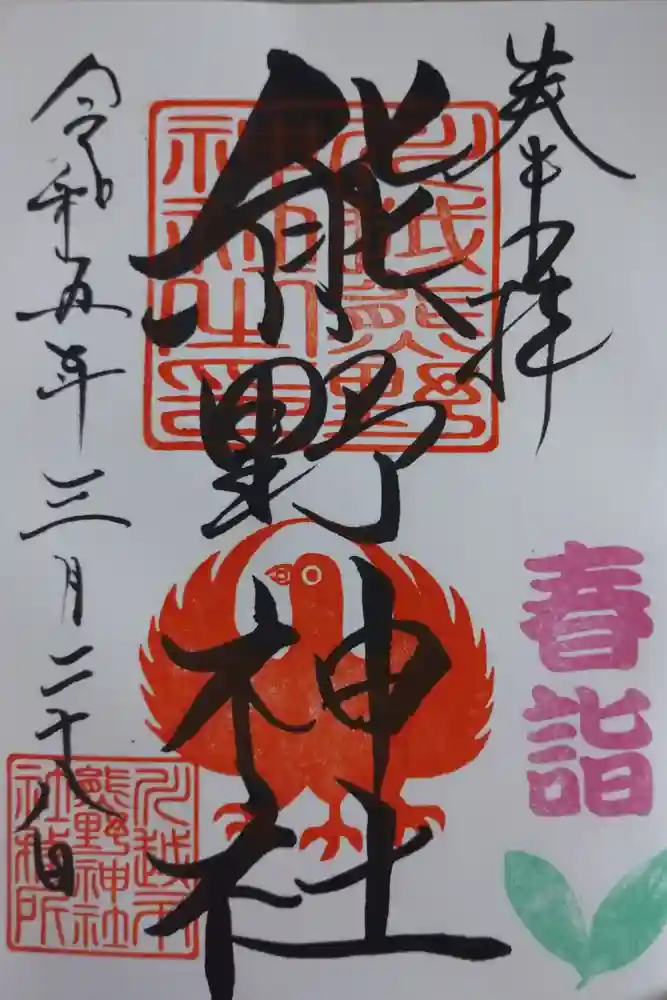 奉拝
春詣
熊野神社
川越熊野
神社之印
令和五年三月二十八日
川越市
熊野神社
社務所